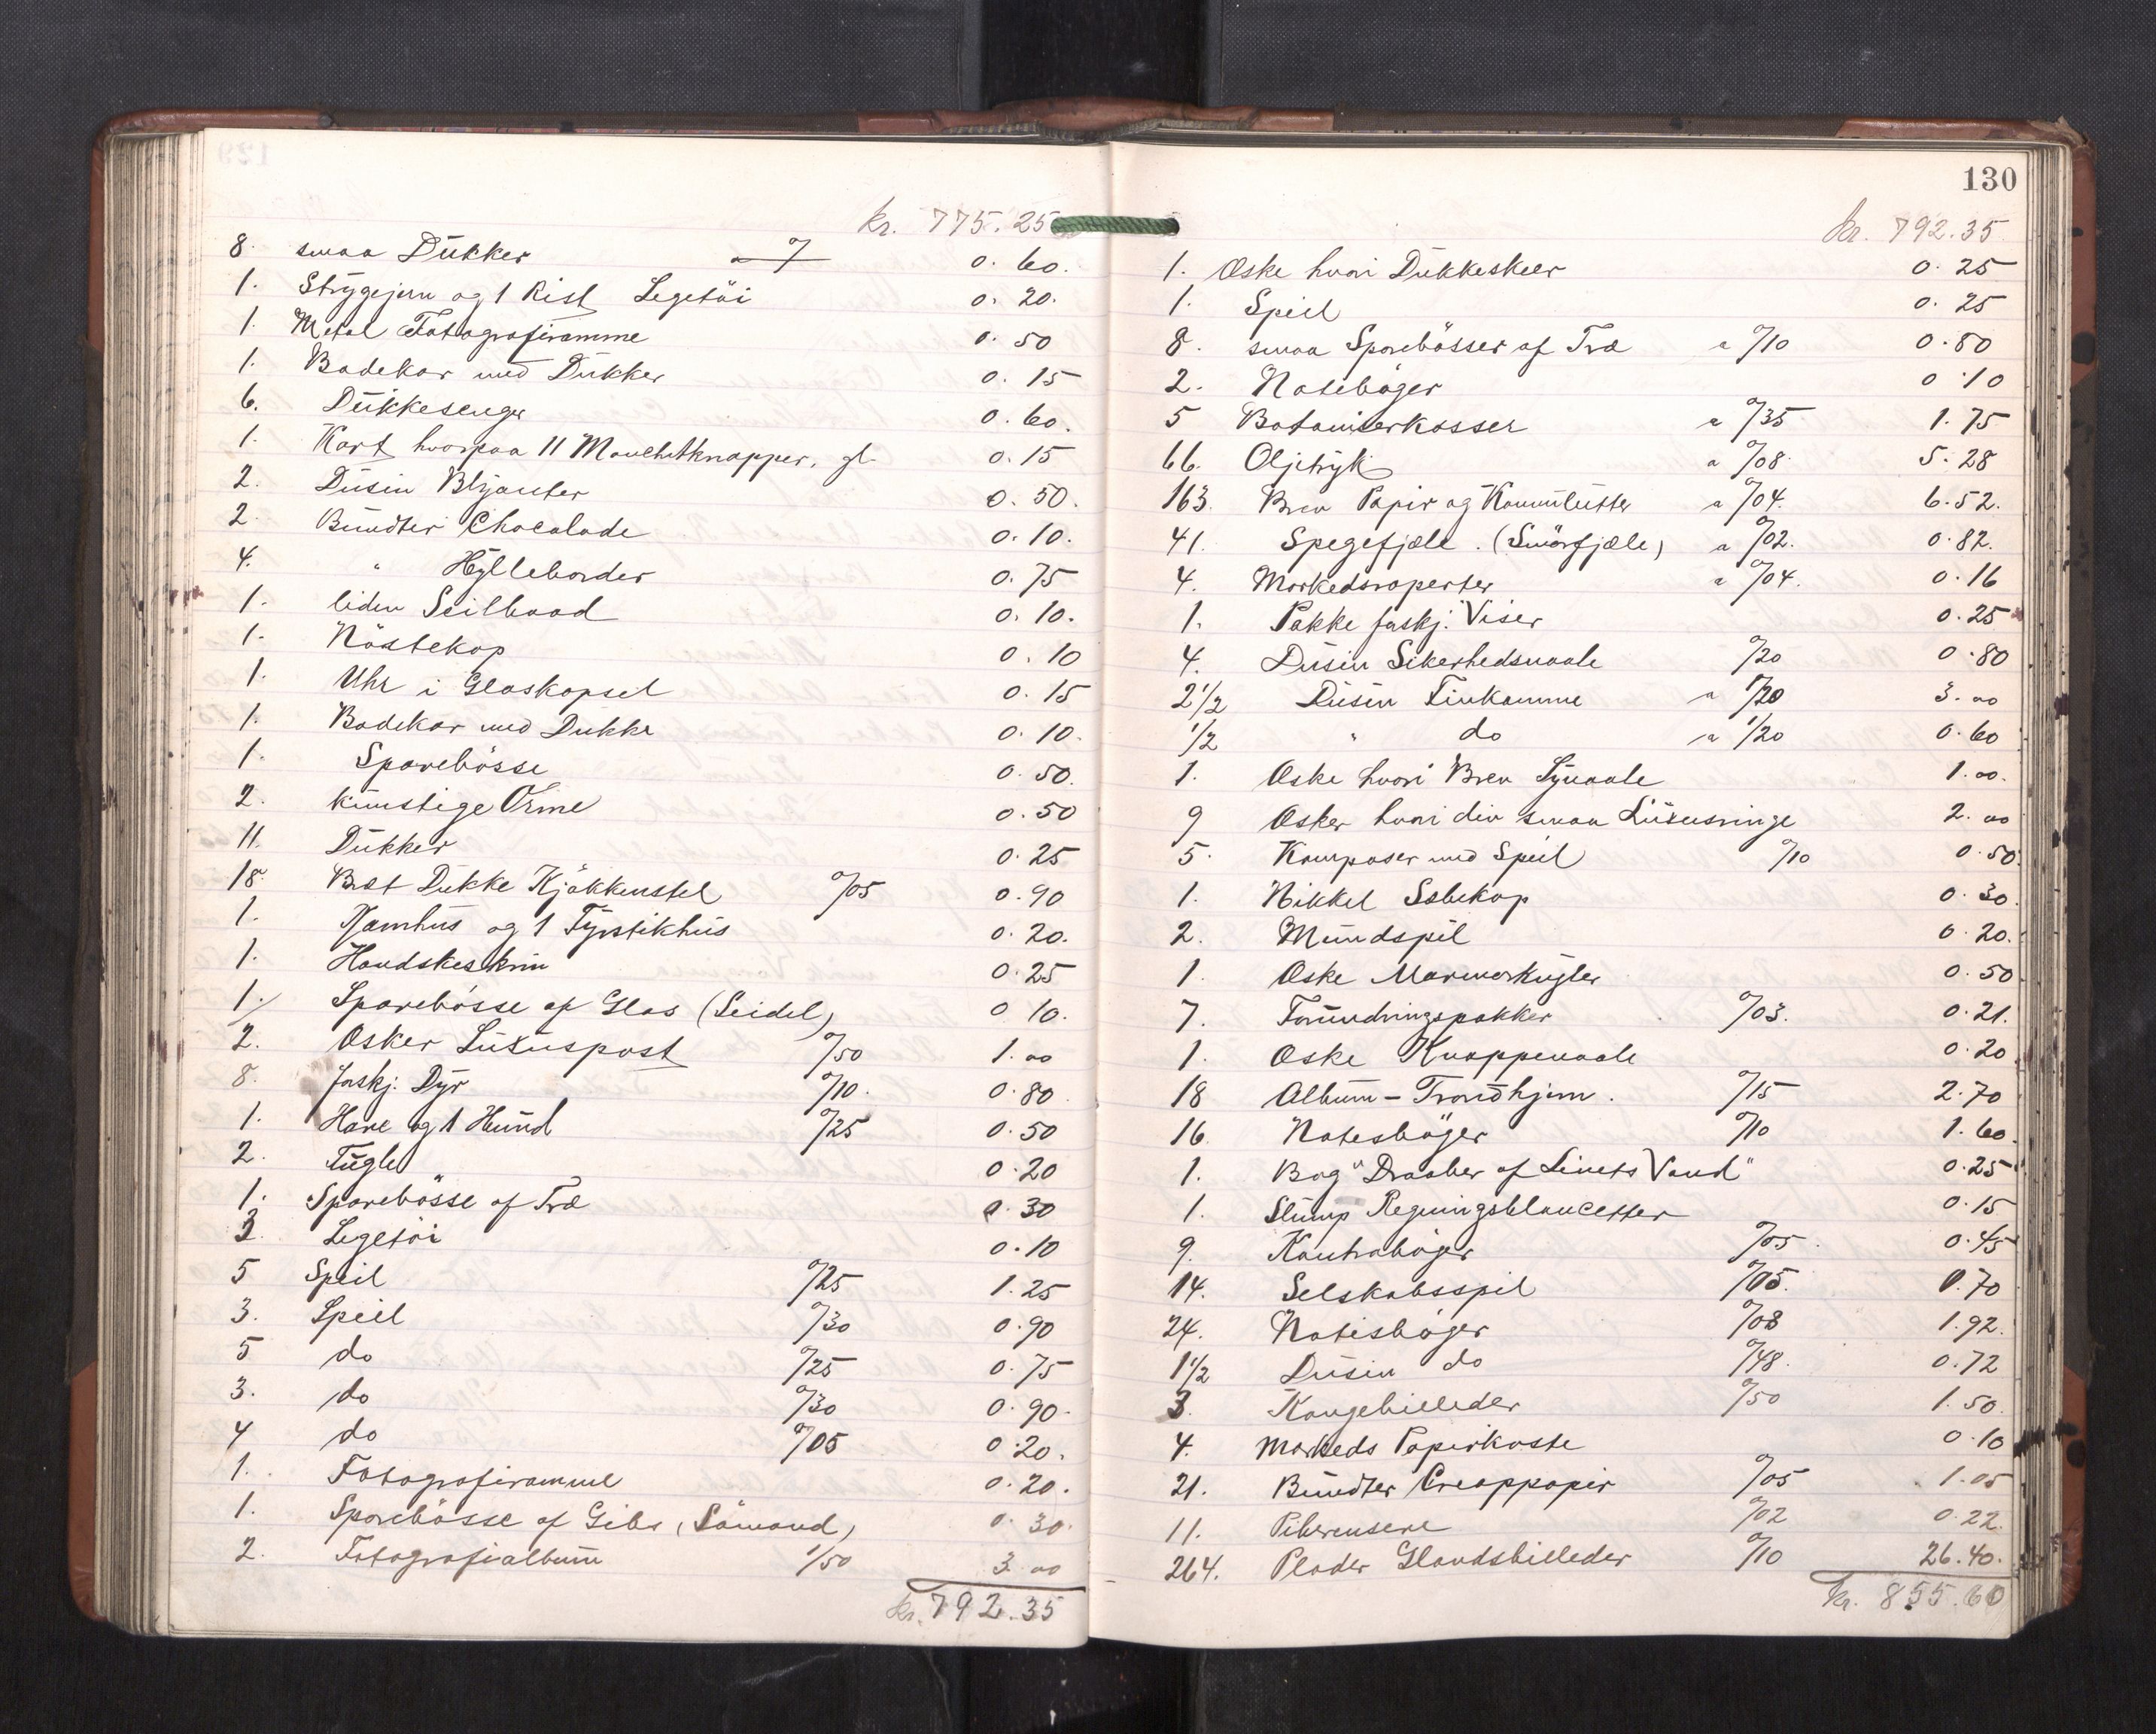 kr. 775.25
8. smaa Dukker a %  0.60.
1. Strygejern og 1 Rist Legetöi 0.20.
1. Metal Fotografiramme 0.50
1. Badekar med Dukker 0.15
6. Dukkesenge 0.60.
1. Kart hvorpaa 11 Manchetknapper, gl. 0.15
2. Dusin Blyanter 0.50.
2. Bundter Chocolade 0.10.
4. " Hylleborder 0.75
1. liden Seilbaad 0.10.
1. Nöstekop 0.10
1. Uhr i Glaskapsel 0.15
1. Badekar med Dukke 0.10.
1. Sparebösse 0.50.
2. kunstige Orme 0.50
11. Dukker 0.25
18. Bræt Dukke Kjökkenstel 0/05 0.90
1. Kamhus og 1 Fyrstikhus 0.20.
1. Handskeskrin 0.25
1. Sparebösse af Glas (Seidel) 0 10.
2. Osker Luxuspost 0/50 1.00
8. forskj. Dyr 0/10. 0.80
1. Hare og 1 Hund 0/25 0.50
2. Fugle 0.20
1. Sparebösse af Træ 0.30
3. Legetöi 0.10
5 Speil 0/25 1.25
3. Speil 0/30 0.90
5 do 0/25 0.75
3. do 0/30 0.90.
4 do 0/05 0.20.
1. Fotografiramme 0.20.
1. Sparebösse af Gibs (Sömand) 0.30.
2. Fotografialbum 1/50 3.00
kr. 792.35
130
kr. 792.35
1. Oske hvori Dukkeskeer 0.25
1. Speil 0.25
8. smaa Sparebösser af Træ a 0/10 0.80
2. Notisböger 0.10
5 Botaniserkasser a 0/35 1.75
66. Oljetryk a 0/08. 5.28
163. Brev Papir og Konvulutter a 0/04. 6.52.
41. Spegefjæle. (Smörfjæle) a 0/02. 0.82.
4. Markedsraperter a 0/04. 0.16
1. Pakke forskj. Viser 0.25
4. Dusin Sikerhedsnaale 0/20 0.80
2 1/2 Dusin Finkamme a 1/20 3.00
1/2 " do a 1/20 0.60
1. Oske hvori Brev Synaale 1.00.
9 Osker hvori div smaa Luxusringe 2.00
5. Kompaser med Speil 0/10 0.50
1. Nikkel Sæbekop 0.30.
2. Mundspil 0.20.
1. Oske Marmorkugler 0.50
7. Forundringspakker 0/03. 0.21.
1. Oske Knappenaale 0.20
18 Album - Trondhjem. 0/15 2.70
16. Notesböger 0/10 1.60.
1. Bog "Draaber af Livets Vand" 0.25
1. Stump Regningsblancetter 0.15
9. Kontraböger 0/05. 0.45
14. Selskabsspil 0/05. 0.70
24. Notisböger 0/08 1.92.
1 1/2 Dusin do 0/48. 0.72
3. Kongebilleder 0/50 1.50.
4. Markeds Papirkoste 0.10
21. Bundter Creappapir 0/05 1.05
11. Piberensere 0/02 0.22.
264. Plader Glandsbilleder 0/10 26.40.
kr. 855.60